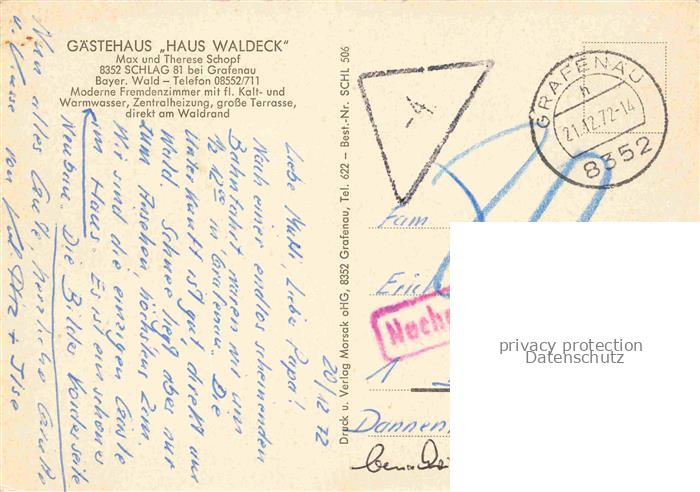 GÄSTEHAUS „HAUS WALDECK"
Max und Therese Schopf
8352 SCHLAG 81 bei Grafenau
Bayer. Wald – Telefon 08552/711
Moderne Fremdenzimmer mit fl. Kalt- und
Warmwasser, Zentralheizung, große Terrasse,
direkt am Waldrand
20/12 72
Liebe Mutti, Liebe Papa!
Nach einer endlos scheinenden
Bahnfahrt waren wir um
in Grafenau. Die
Unterkunft ist gut, direkt am
Wald. Schnee liegt aber nur
zum Ansehen, höchstens 2 cm.
Wir sind die einzigen Gäste
im Haus. Es ist ein schönes
Neubau. Die Bilder Vorderseite
Nun alles Gute herzliche Grüße
u. Küsse von + Ilse
Druck u. Verlag Morsak oHG, 8352 Grafenau, Tel. 622 – Best.-Nr. SCHL 506
GRAFENAU
h
21.12.72-14
8352
Fam
Erich
Nach
1
Dannen
privacy protection
Datenschutz